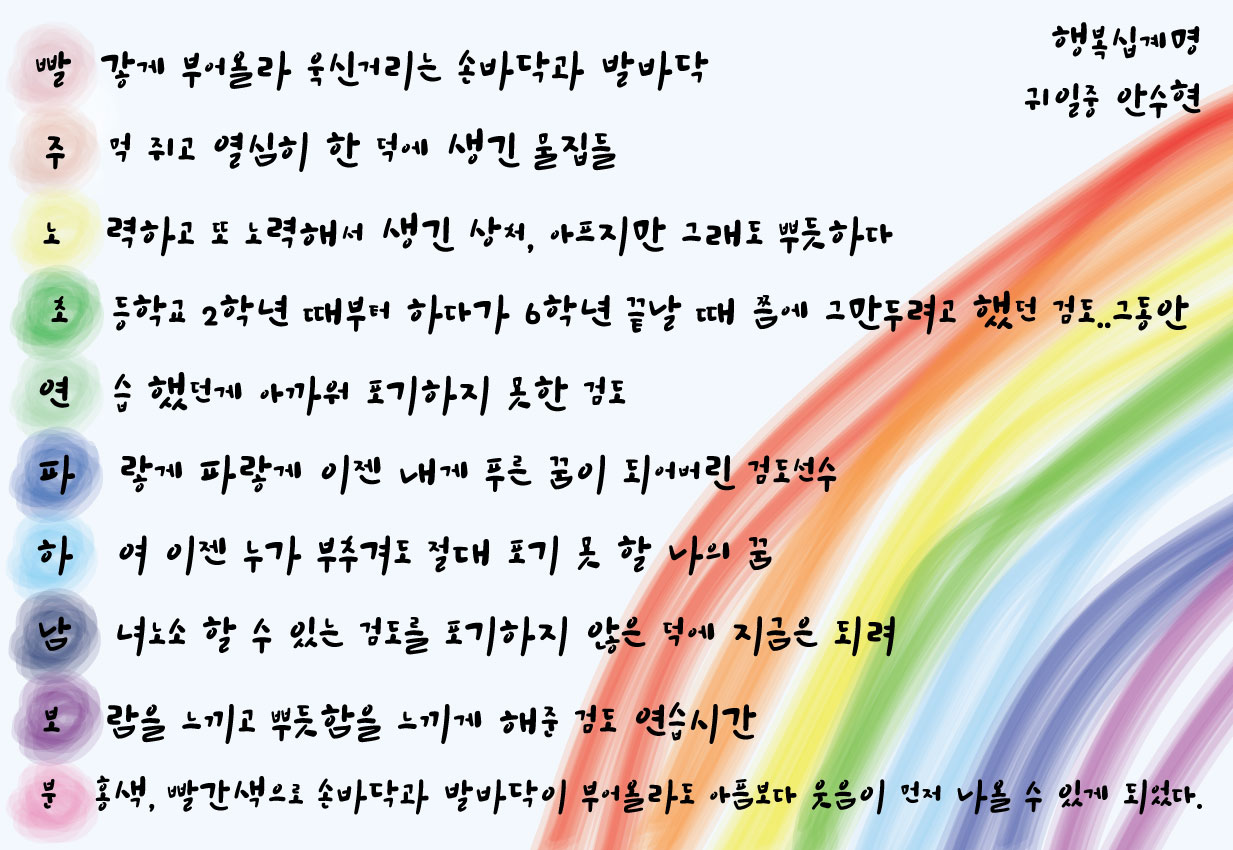 행복십계명
귀일중 안수현
빨 갛게 부어올라 욱신거리는 손바닥과 발바닥
주 먹 쥐고 열심히 한 덕에 생긴 물집들
노 력하고 또 노력해서 생긴 상처, 아프지만 그래도 뿌듯하다
초 등학교 2학년 때부터 하다가 6학년 끝날 때 쯤에 그만두려고 했던 검도..그동안
연 습 했던게 아까워 포기하지 못한 검도
파 랗게 파랗게 이젠 내게 푸른 꿈이 되어버린 검도선수
하 여 이젠 누가 부추겨도 절대 포기 못 할 나의 꿈
남 녀노소 할 수 있는 검도를 포기하지 않은 덕에 지금은 되려
보 람을 느끼고 뿌듯함을 느끼게 해준 검도 연습시간
분 홍색, 빨간색으로 손바닥과 발바닥이 부어올라도 아픔보다 웃음이 먼저 나올 수 있게 되었다.